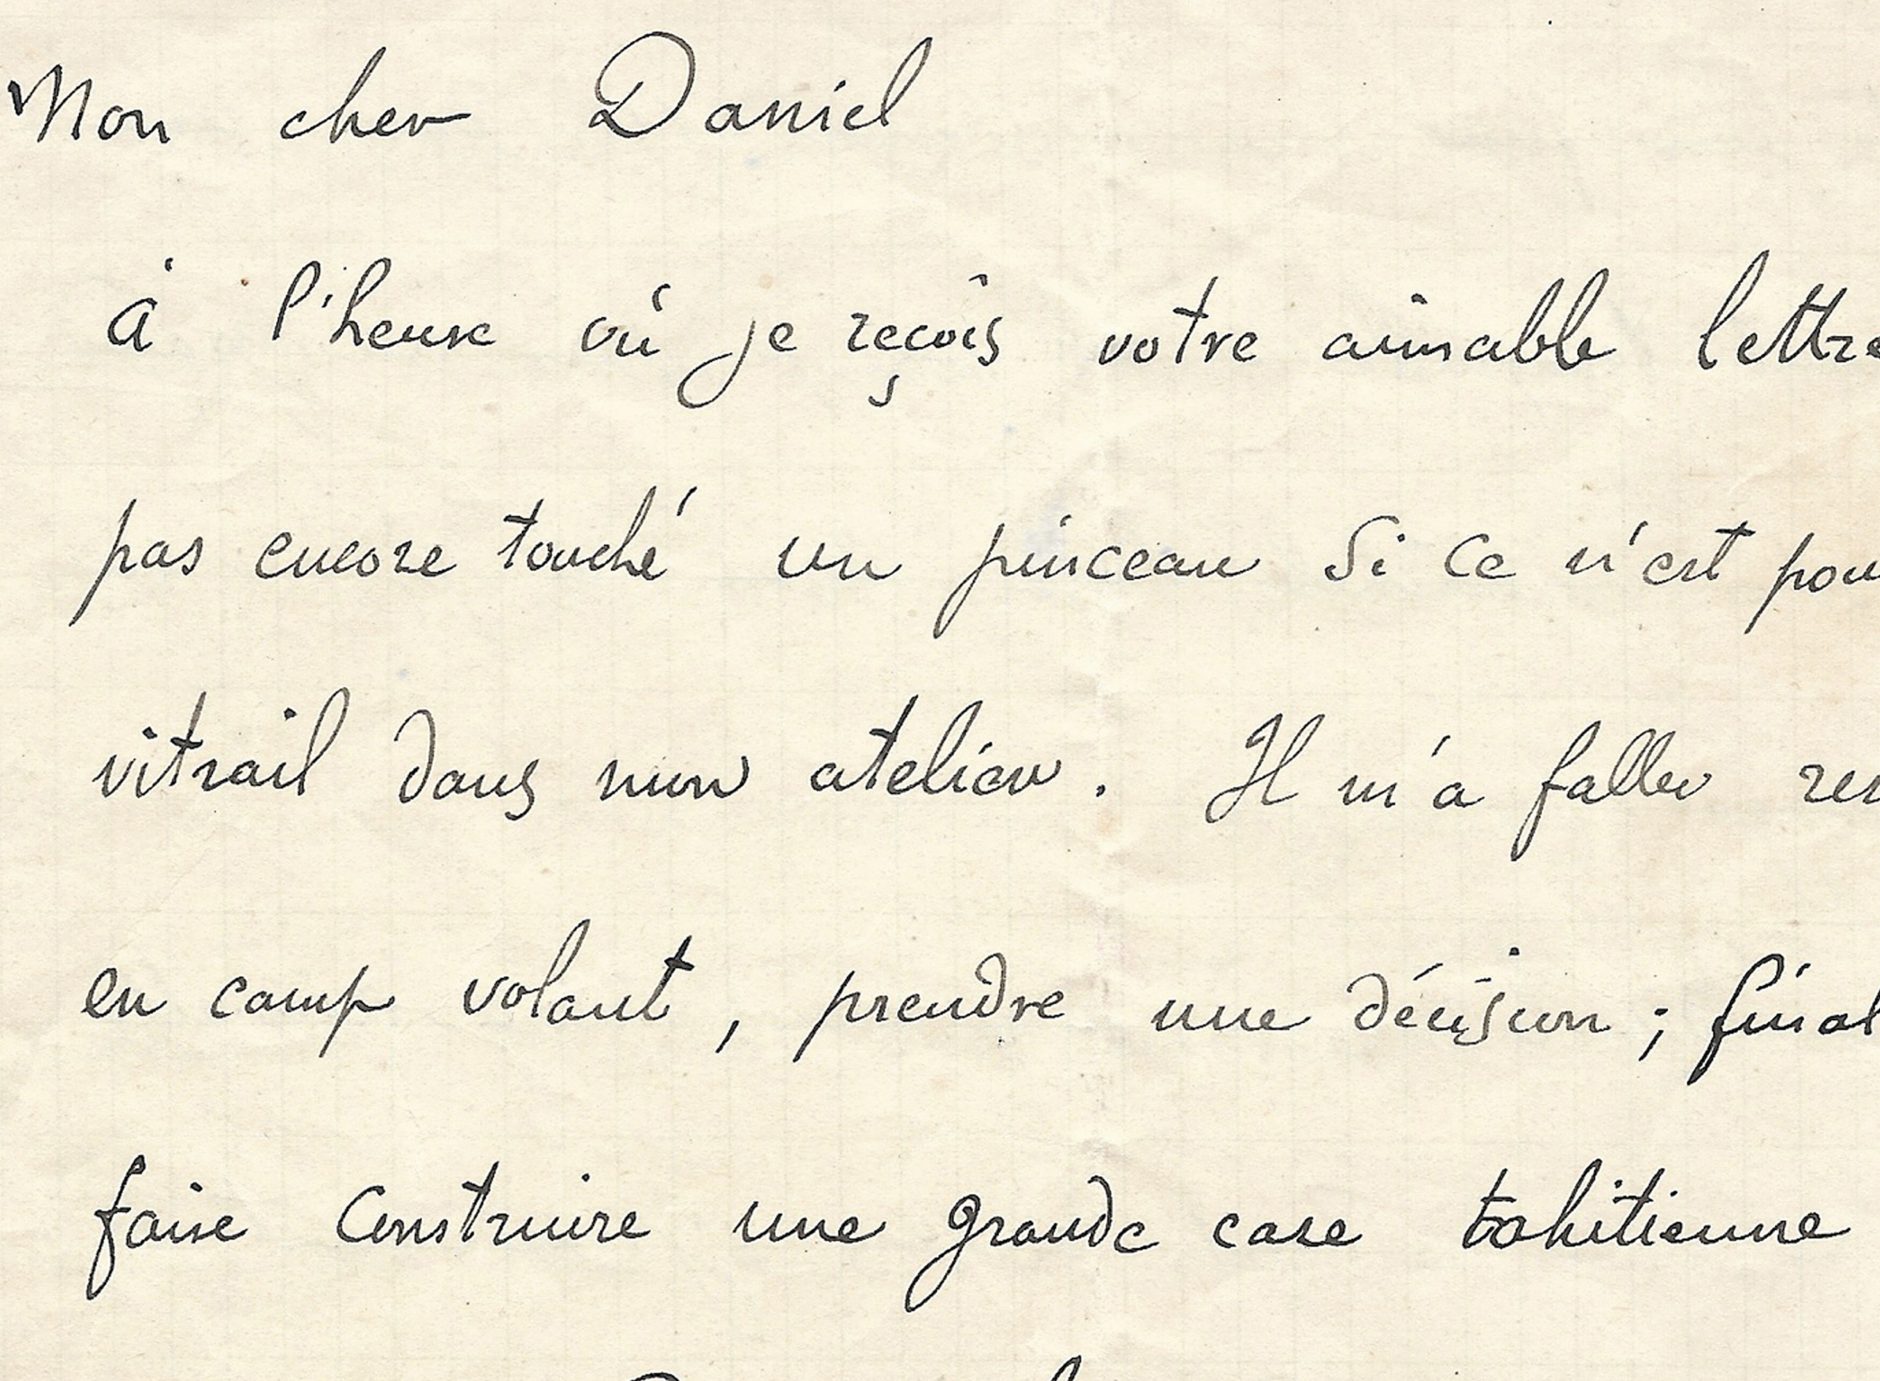 Mon cher Daniel
à l'heure où je reçois votre aimable lettre
pas encore touché un pinceau si ce n'est pour
vitrail dans mon atelier. Il m'a fallu
en camp volant, prendre une décision ; final
faire construire une grande case tahitienne